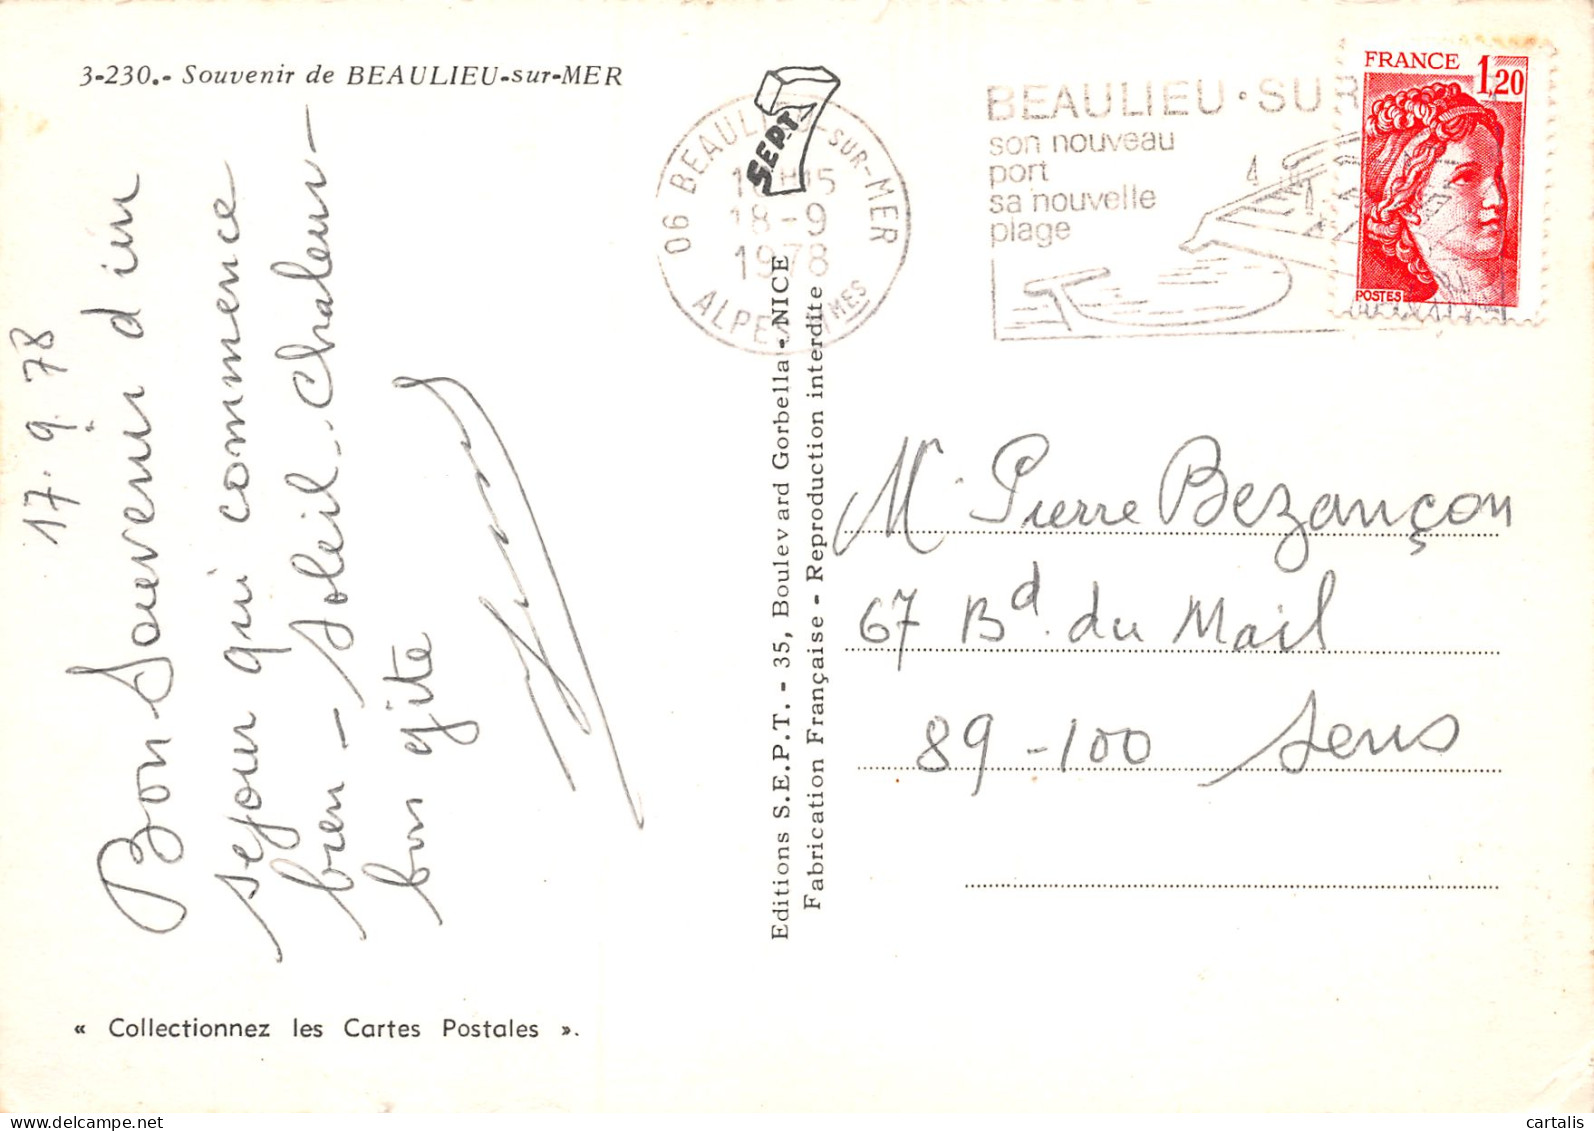 3-230.- Souvenir de BEAULIEU-sur-MER
17.9.78
Bon Souvenir d'un
séjour qui commence
bien - Soleil - Chaleur -
bon gîte
« Collectionnez les Cartes Postales ».
Editions S.E.P.T. - 35, Boulevard Gorbella - NICE
Fabrication Française - Reproduction interdite
SEPT
06 BEAULIEU-SUR-MER
18-9
1978
ALPES MMES
BEAULIEU·SUR
son nouveau
port
sa nouvelle
plage
FRANCE 1,20
POSTES
M. Pierre Bezançon
67 Bd. du Mail
89-100 Sens
cartalis
www.delcampe.net